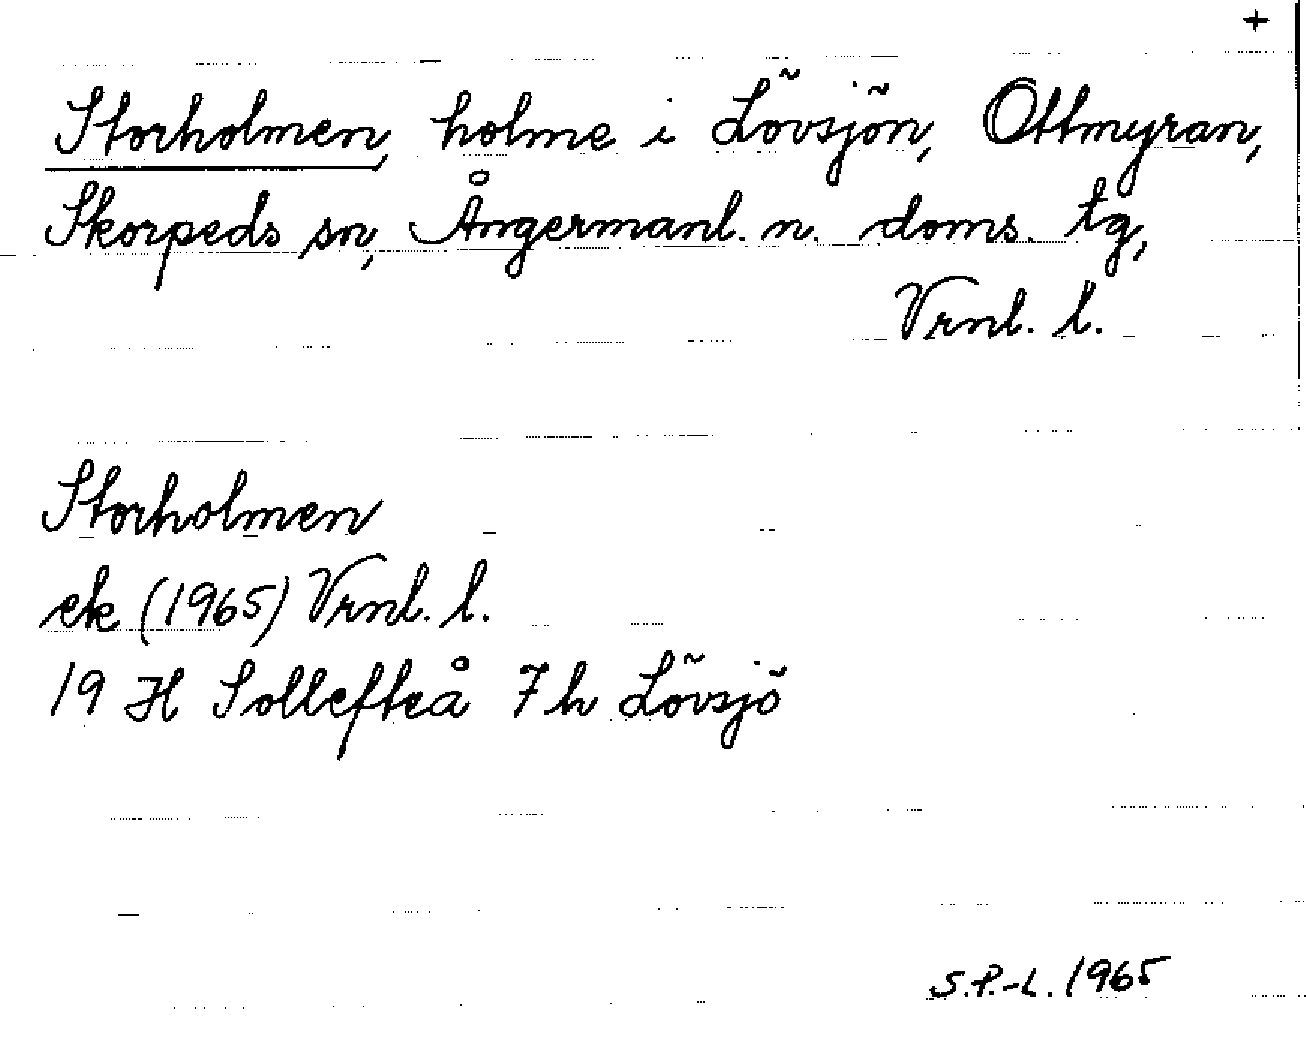 +
Storholmen, holme i Lövsjön, Ottmyran,
Skorpeds sn, Ångermanl. n. doms. tg,
Vrnl. l.
Storholmen
ek (1965) Vrnl. l.
19 H Sollefteå 7h Lövsjö
S.P.-L. 1965